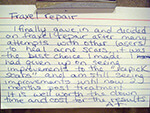 Fraxel repair
I finally gave in and decided
on fraxel repair after many
attempts with other lasers
to heal acne scars, it was
the best choice I made! I
had given up on seeing
improvements to the "slopes &
scars" and am still seeing
improvements until
months post treatment
It is well worth the down
time and cost for results